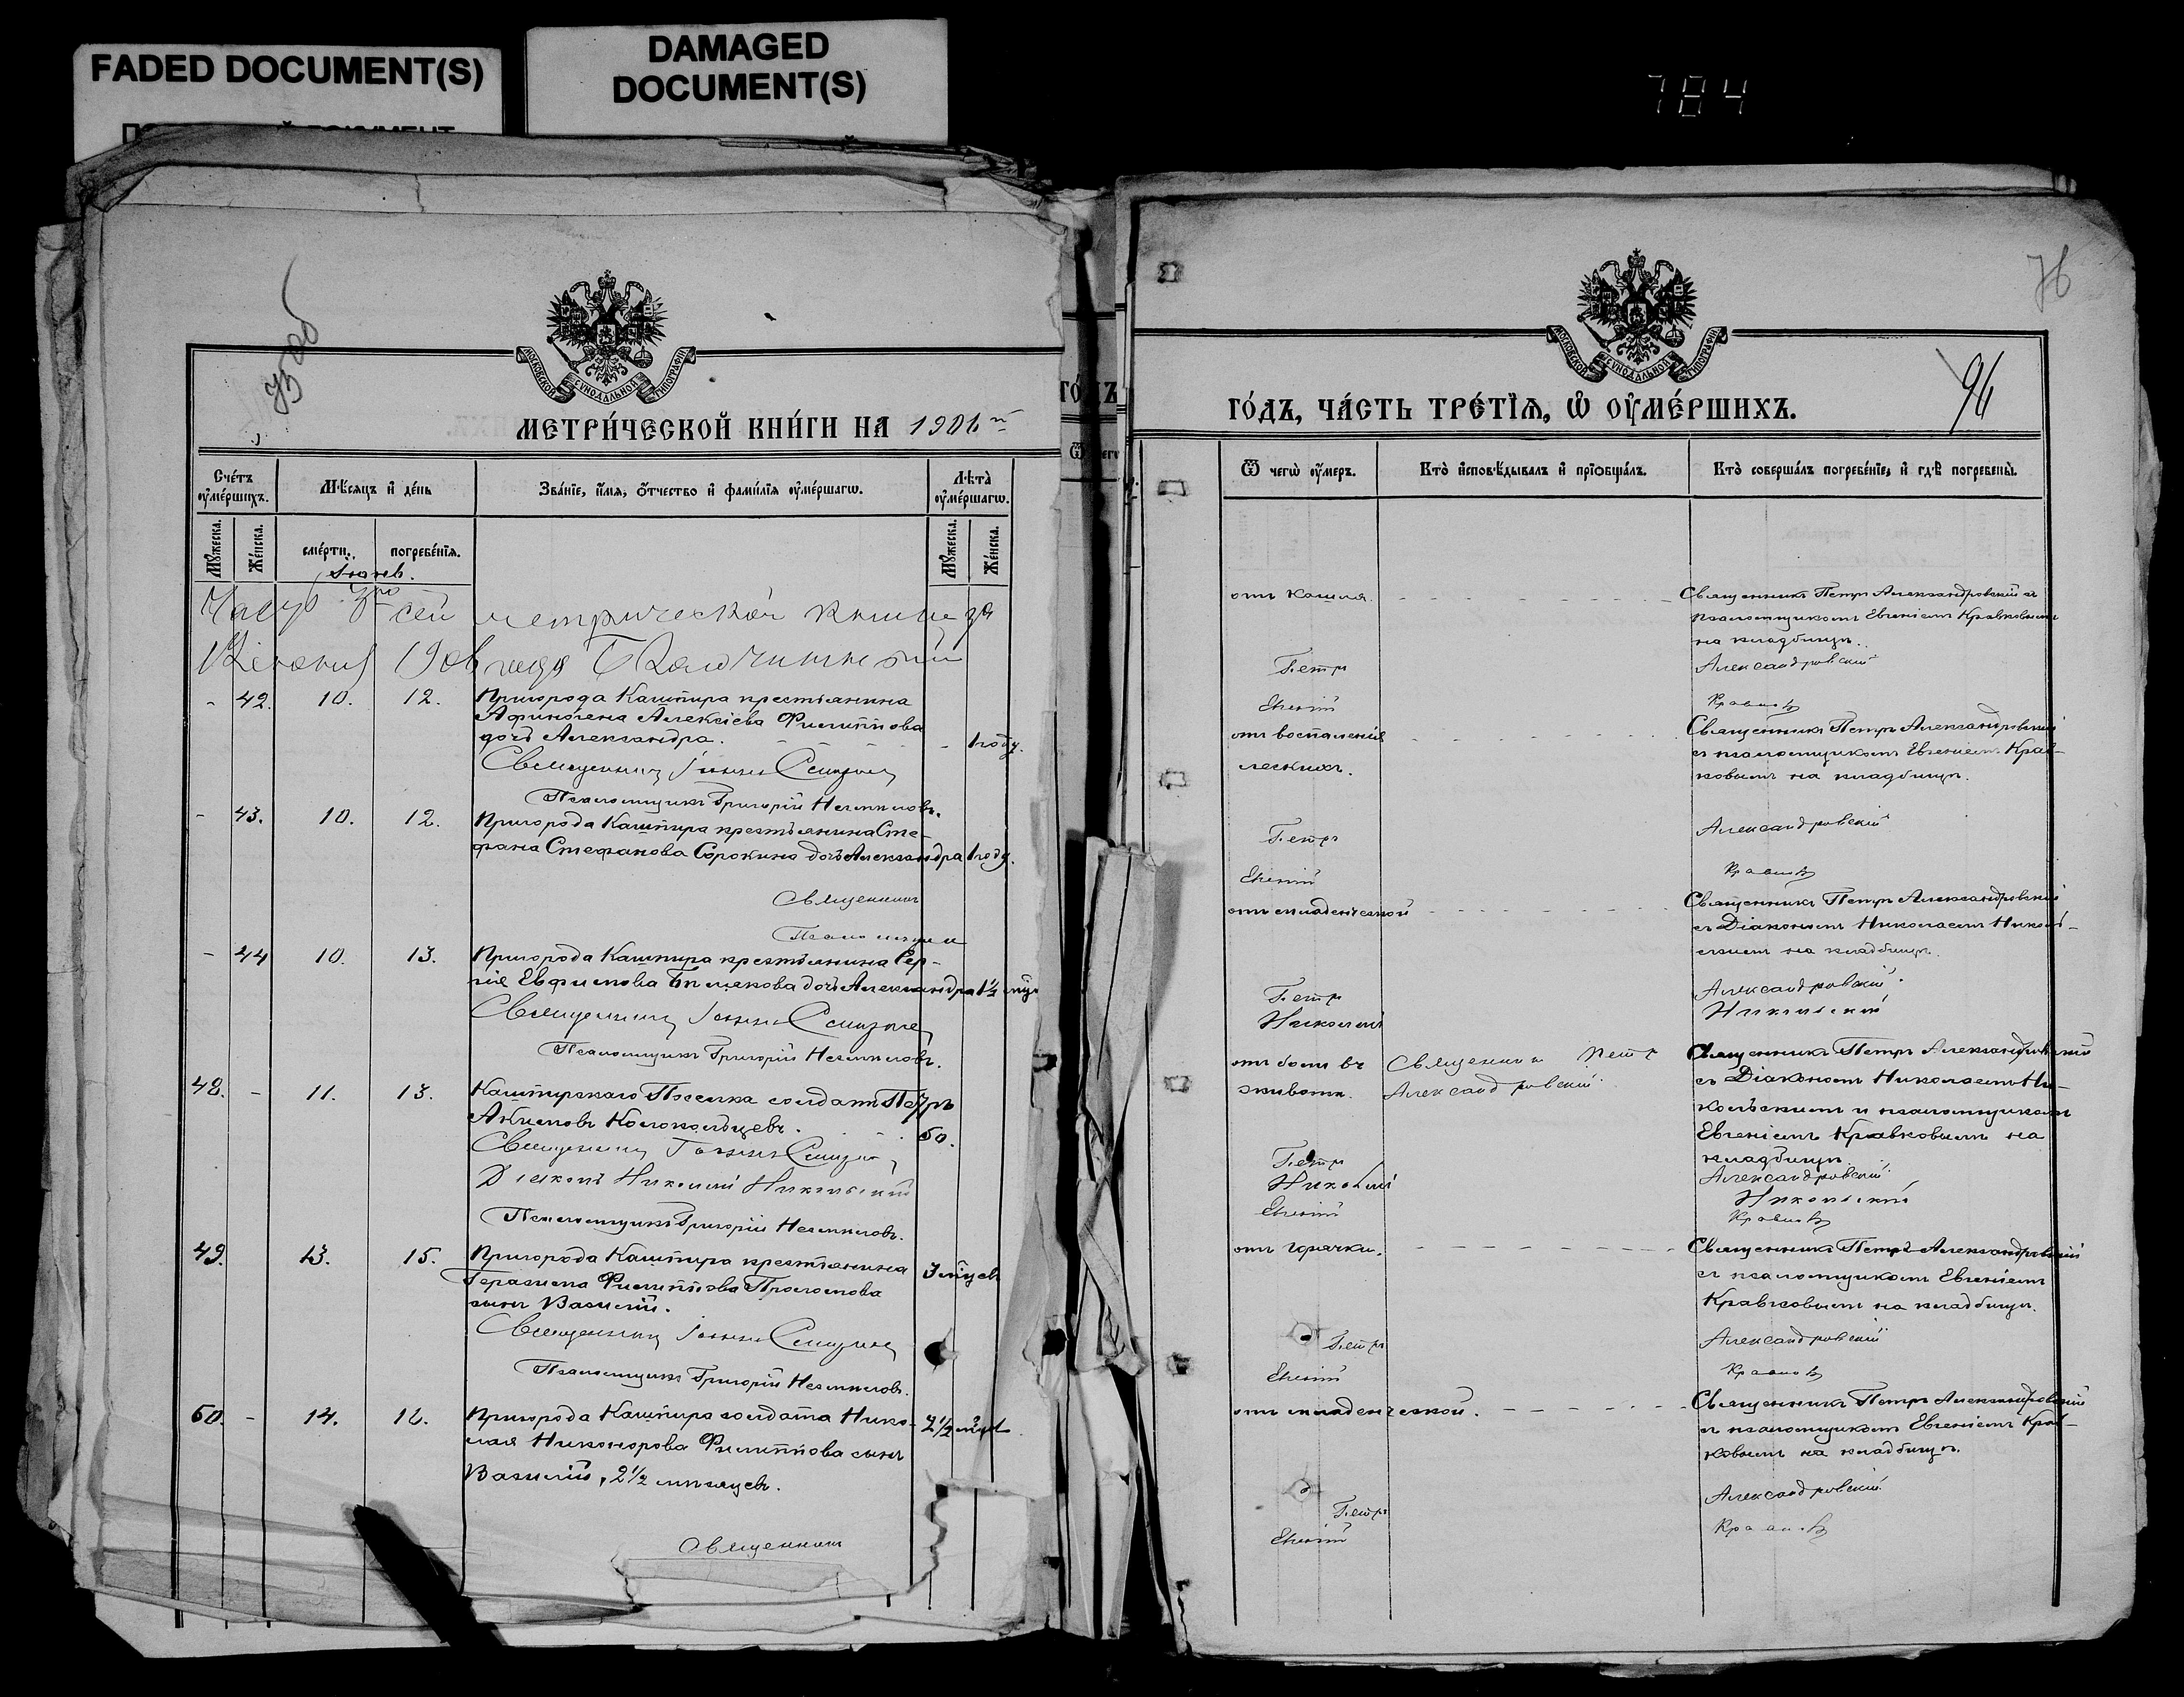 FADED DOCUMENT(S)
DAMAGED
DOCUMENT(S)
784
МОСКОВСКОЙ СѴНОДАЛЬНОЙ ТИПОГРАФІИ
МЕТРИ́ЧЕСКОЙ КНИ́ГИ НА 1906й
Сче́тъ оу҆ме́ршихъ.
Мѣ́сяцъ и҆ де́нь
Зва́нїе, и҆́мя, ѻ҆́тчество и҆ фами́лїя оу҆ме́ршагѡ.
Лѣ́та оу҆ме́ршагѡ.
Мꙋ́жеска.
Же́нска.
сме́рти.
погребе́нїя.
Мꙋ́жеска.
Же́нска.
Іюнь.
сей метрической книги за
- 42. 10. 12. Пригорода Кашпира крестьянина
Афиногена Алексіева Филиппова
дочь Александра. - 1 году.
Священникъ Іоаннъ
Псаломщикъ Григорій
- 43. 10. 12. Пригорода Кашпира крестьянина Сте-
фана Стефанова Сорокина дочь Александра 1 году.
Священникъ
Псаломщикъ
- 44 10. 13. Пригорода Кашпира крестьянина Сер-
гія Евфимова дочь Александра 1½
Священникъ Іоаннъ
Псаломщикъ Григорій
48. - 11. 13. Кашпирскаго Поселка солдатъ Петръ
Акимовъ Колокольцевъ. 50.
Священникъ Іоаннъ
Діаконъ Николай Никольскій
Псаломщикъ Григорій
49. 13. 15. Пригорода Кашпира крестьянина
Герасима Филиппова 3 мѣсяц
сынъ Василій.
Священникъ Іоаннъ
Псаломщикъ Григорій
50. - 14. 16. Пригорода Кашпира солдата Нико-
лая Никонорова Филиппова сынъ 2½
Василій, 2½ мѣсяцевъ.
Священникъ
76
96
МОСКОВСКОЙ СѴНОДАЛЬНОЙ ТИПОГРАФІИ
ГО́ДЪ, ЧА́СТЬ ТРЕ́ТЇЯ, Ѡ҆ ОУ҆МЕ́РШИХЪ.
Ѿ чегѡ̀ оу҆́меръ.
Кто̀ и҆сповѣ́дывалъ и҆ прїѡбща́лъ.
Кто̀ соверша́лъ погребе́нїе, и҆ гдѣ̀ погребены̀.
отъ кашля. Священникъ Петръ Александровскій съ
псаломщикомъ Евгеніемъ Кравковымъ
на кладбищѣ.
Петръ Александровскій
Евгеній Кравковъ
отъ воспаленія Священникъ Петръ Александровскій
легкихъ. съ псаломщикомъ Евгеніемъ Крав-
ковымъ на кладбищѣ.
Петръ Александровскій
Евгеній Кравковъ
отъ младенческой Священникъ Петръ Александровскій
съ Діакономъ Николаемъ Николь-
скимъ на кладбищѣ.
Петръ Александровскій
Николай Никольскій
отъ боли въ Священникъ Петръ Священникъ Петръ Александровскій
животѣ. Александровскій. съ Діакономъ Николаемъ Ни-
кольскимъ и псаломщикомъ
Евгеніемъ Кравковымъ на
кладбищѣ.
Петръ Александровскій
Николай Никольскій
Евгеній Кравковъ
отъ горячки. Священникъ Петръ Александровскій
съ псаломщикомъ Евгеніемъ
Кравковымъ на кладбищѣ.
Петръ Александровскій
Евгеній Кравковъ
отъ младенческой. Священникъ Петръ Александровскій
съ псаломщикомъ Евгеніемъ Крав-
ковымъ на кладбищѣ.
Петръ Александровскій
Евгеній Кравковъ